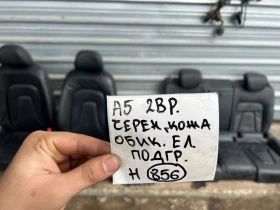 А5 2ВР.
ЧЕРЕН, КОЖА
ОБИК. ЕЛ.
ПОДГР.
Н 856